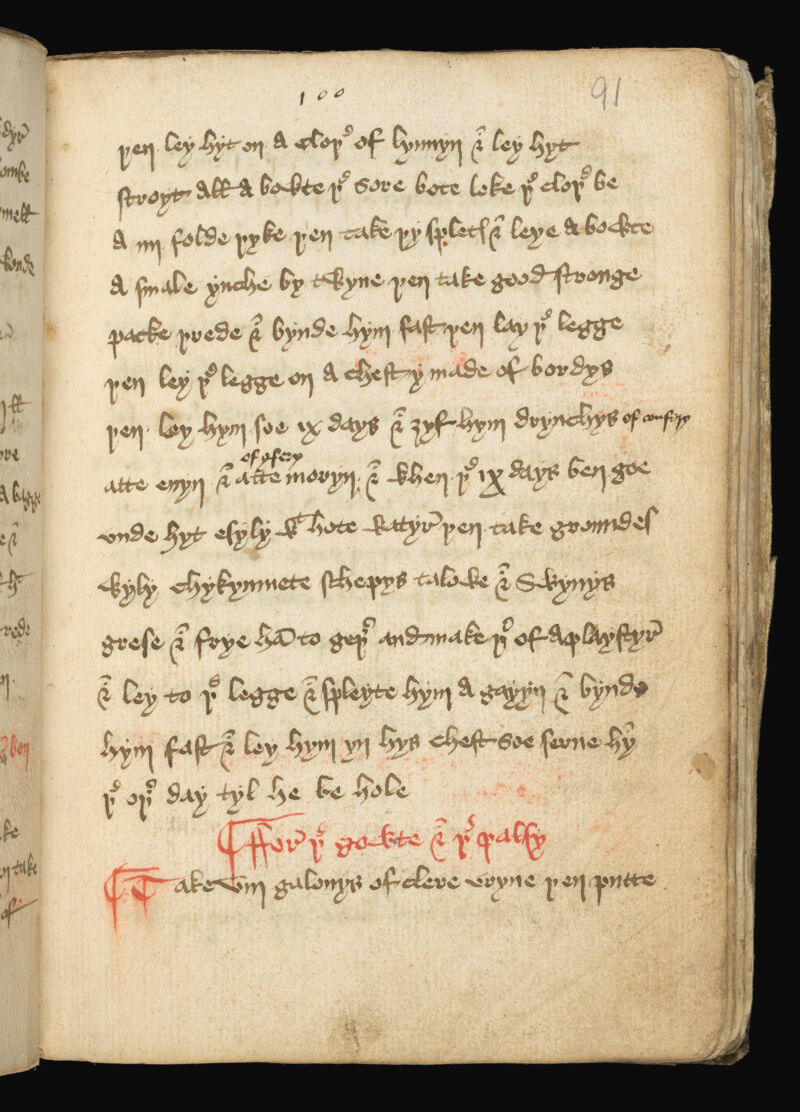 100
91
þen ley hyt on a cloþ of lynnyn & ley hyt
stroyt all a bowte þe sore bote loke þe cloþe be
a iiij folde þyke þen take þy splets & leye a bowte
a smale ynche by twyne þen take good stronge
packe þrede & bynde hym fast þen lay þe legge
þen ley þe legge on a chest y made of bordys
þen ley hym soe ix days & ȝyf hym drynchys of comfery
of osery
atte euyn & atte moryn & when þe ix days ben goe
vnde hyt esyly wt hote watyr þen take groundes
wyly chykynmete schepys talowe & Swynys
grese & frye ham to geþer and make þe of a playstyr
& ley to þe legge & spleyte hym a gayyn & bynde
hym fast & ley hym yn hys chest soe serue hym
þe oþer day tyl he be hole
Ffor þe gowte & þe palsy
Take viij galonys of clere vryne þen putte